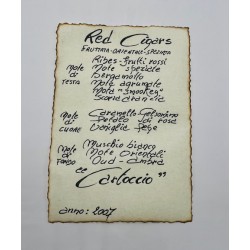 Red Cigars
FRUTTATA-ORIENTALE-SPEZIATA
Ribes-frutti rossi
Note speziate
Note di testa
Bergamotto
Note agrumate
Note "Smookey"
Scorza d'arancia
Note di cuore
Caramello-Gelsomino
Petalo di rosa
Vaniglia Pepe
Note di Fondo
Muschio bianco
Note orientali
Oud-ambra
"Cartoccio"
anno: 2007